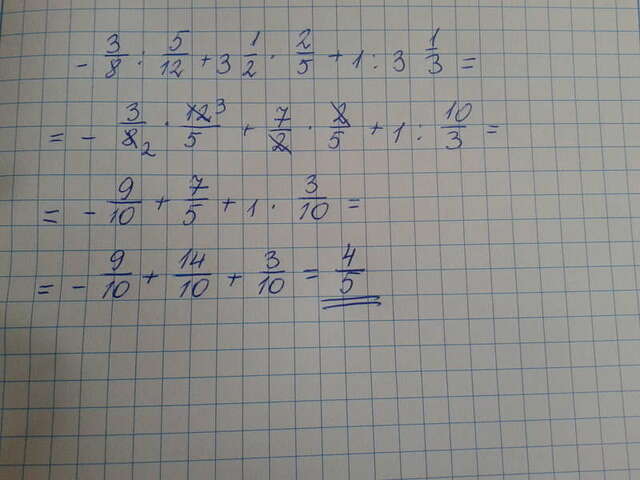 - 3/8 : 5/12 + 3 1/2 · 2/5 + 1 : 3 1/3 =
= - 3/8 2 · 12 3/5 + 7/2 · 2/5 + 1 : 10/3 =
= - 9/10 + 7/5 + 1 · 3/10 =
= - 9/10 + 14/10 + 3/10 = 4/5